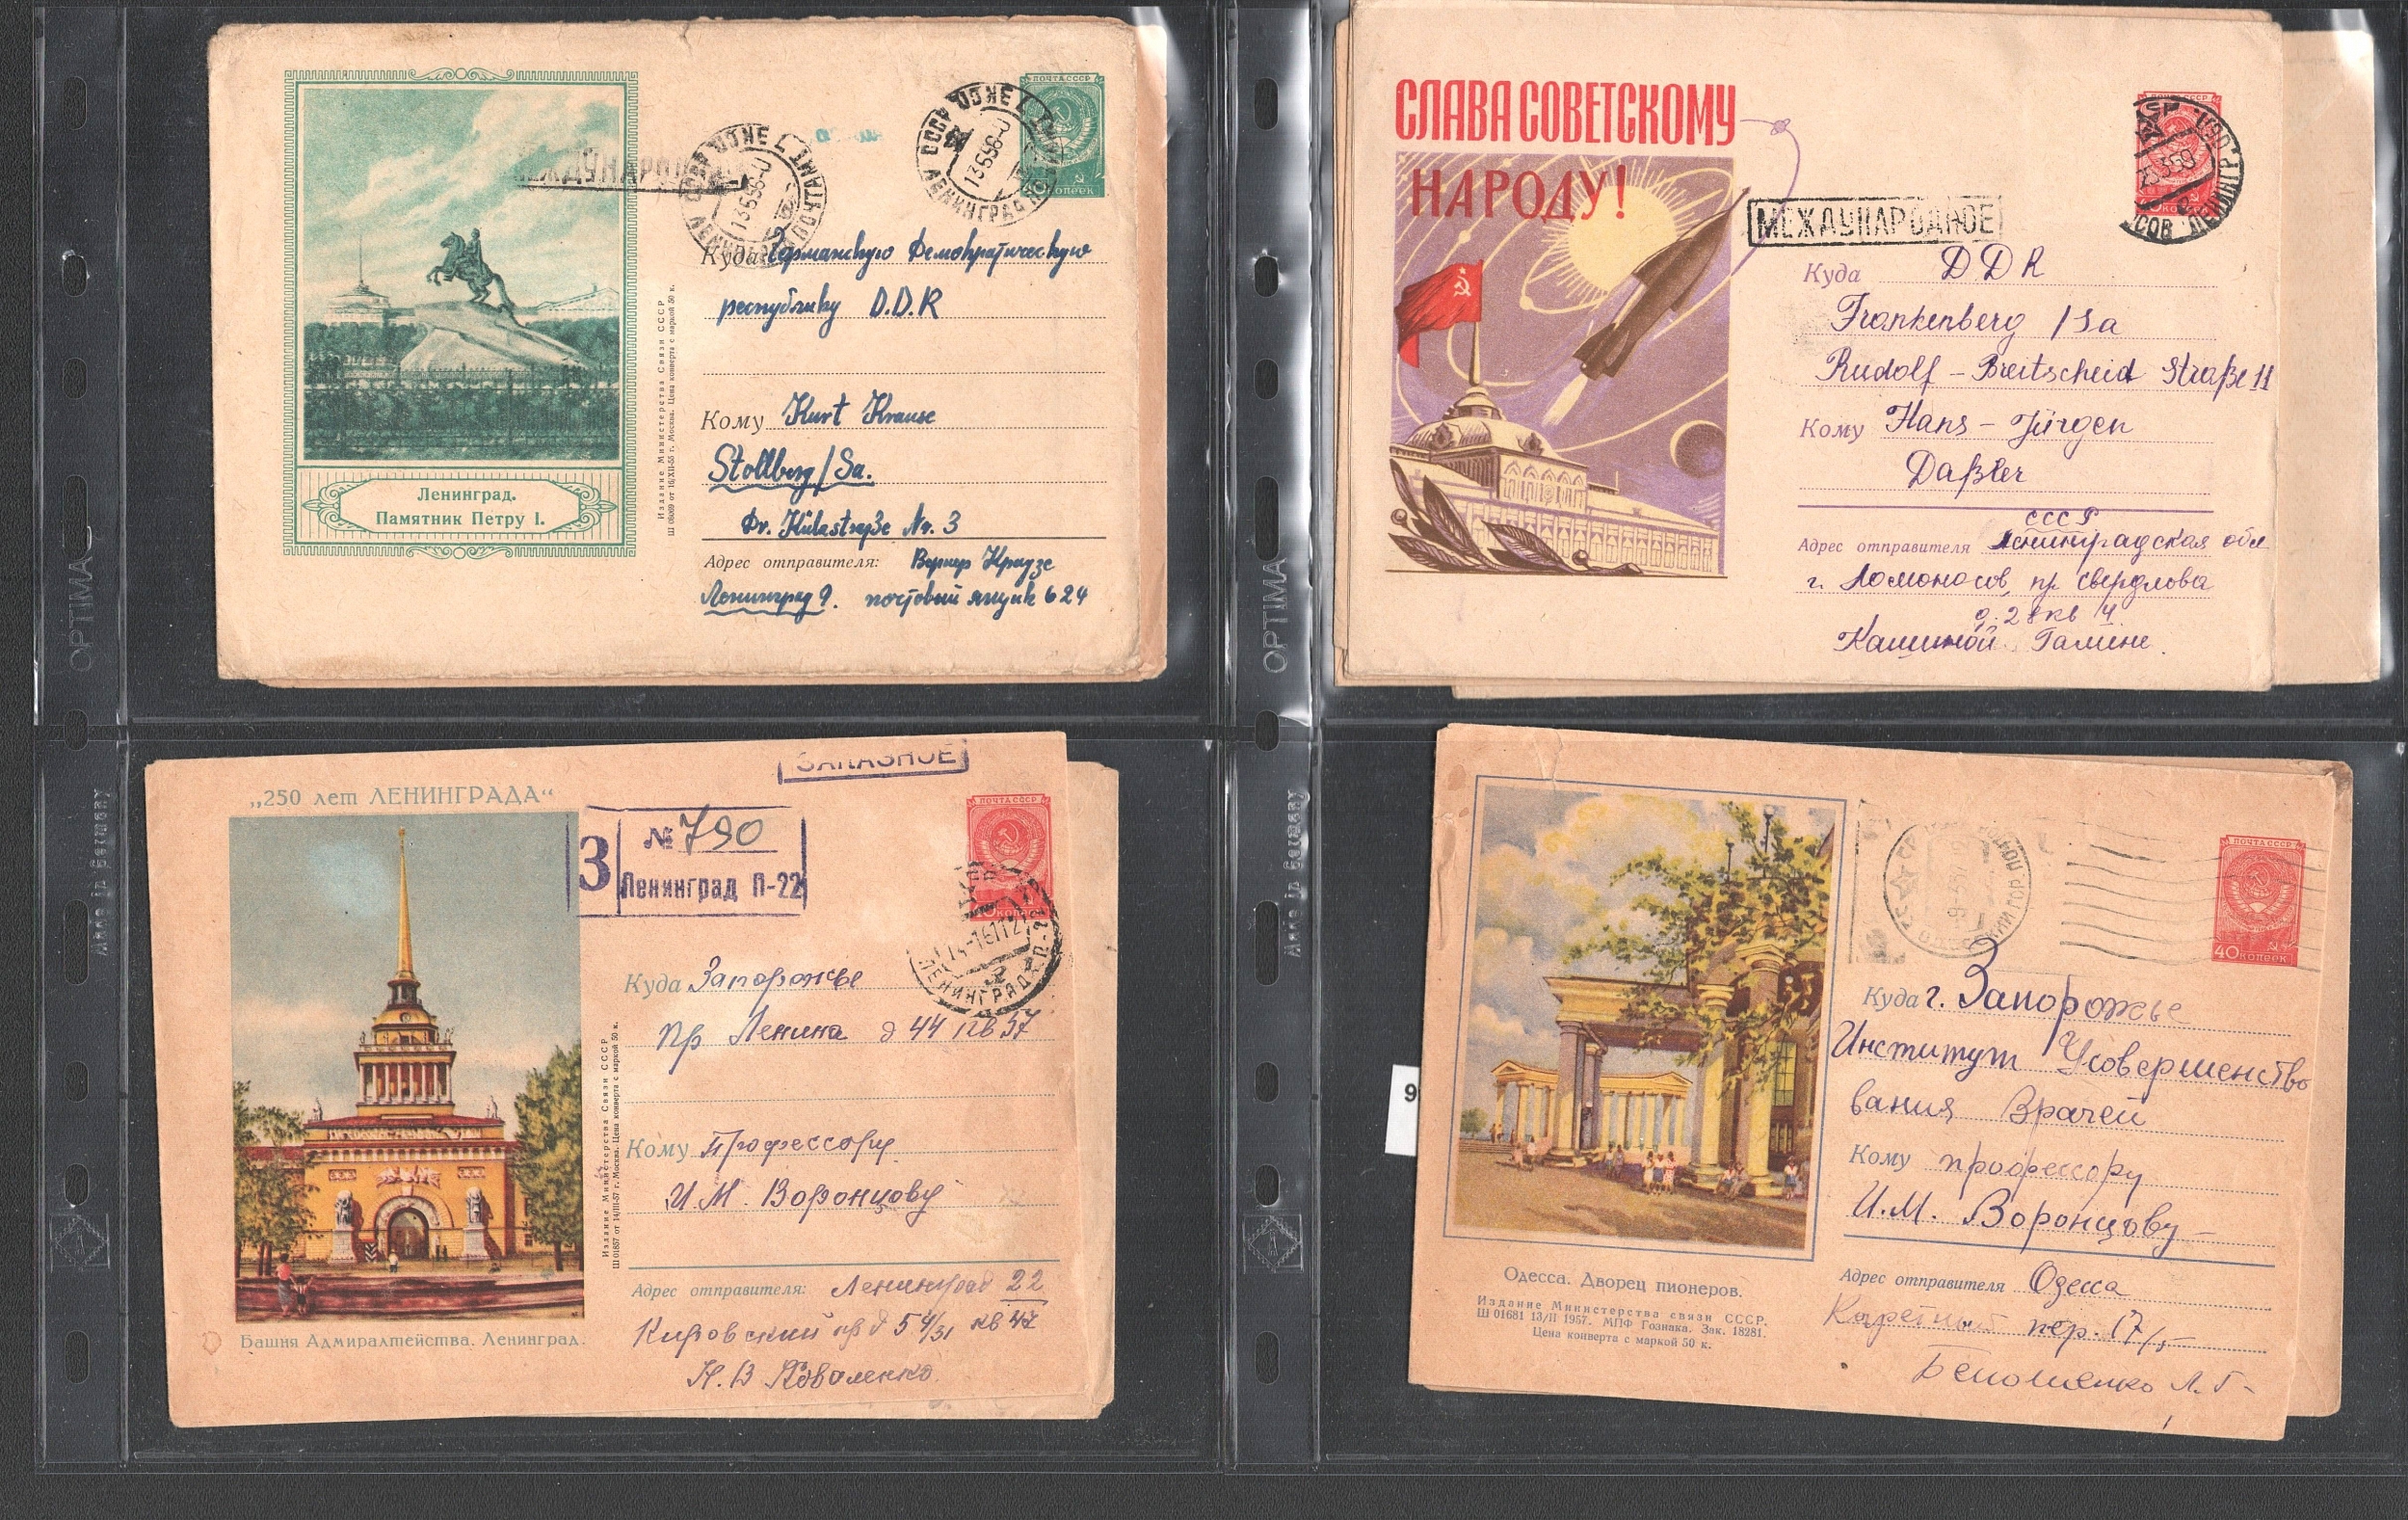 ПОЧТА СССР
40 КОПЕЕК
МЕЖДУНАРОДНОЕ
СССР ЛЕНИНГРАД ПОЧТАМТ
13656
Ленинград.
Памятник Петру I.
Издание Министерства Связи СССР
г. Москва. Цена конверта с маркой 50 к.
Куда Германскую Демократическую
республику D.D.R
Кому Kurt Krause
Stollberg/Sa.
Nr. 3
Адрес отправителя: Вернер Краузе
Ленинград 9. постовый ящик 624
OPTIMA
СЛАВА СОВЕТСКОМУ
НАРОДУ!
ПОЧТА СССР
МЕЖДУНАРОДНОЕ
Куда DDR
Frankenberg /Sa
Rudolf - Breitscheid Straße 11
Кому Hans - Jürgen
Daßler
СССР
Адрес отправителя Ленинградская обл
г. Ломоносов, пр Свердлова
д. 28 кв 4.
Галине.
OPTIMA
ЗАКАЗНОЕ
„250 лет ЛЕНИНГРАДА“
З № 790
Ленинград П-22
ПОЧТА СССР
40 КОПЕЕК
ЛЕНИНГРАД П-22
Куда Запорожье
пр Ленина д 44 кв 37
Кому Профессору
И М. Воронцову
Издание Министерства Связи СССР
Ш 01857 от 14/III-57 г. Москва. Цена конверта с маркой 50 к.
Адрес отправителя: Ленинград 22
Кировский пр д 54/31 кв 47
Н. В Коваленко.
Башня Адмиралтейства. Ленинград.
Made in Germany
ПОЧТА СССР
40 КОПЕЕК
Куда г. Запорожье
Институт Усовершенство
вания Врачей
Кому профессору
И.М. Воронцову
Одесса. Дворец пионеров.
Издание Министерства связи СССР.
Ш 01681 13/II 1957. МПФ Гознака. Зак. 18281.
Цена конверта с маркой 50 к.
Адрес отправителя Одесса
Каретный пер. 17/
Л. Г
Made in Germany
9